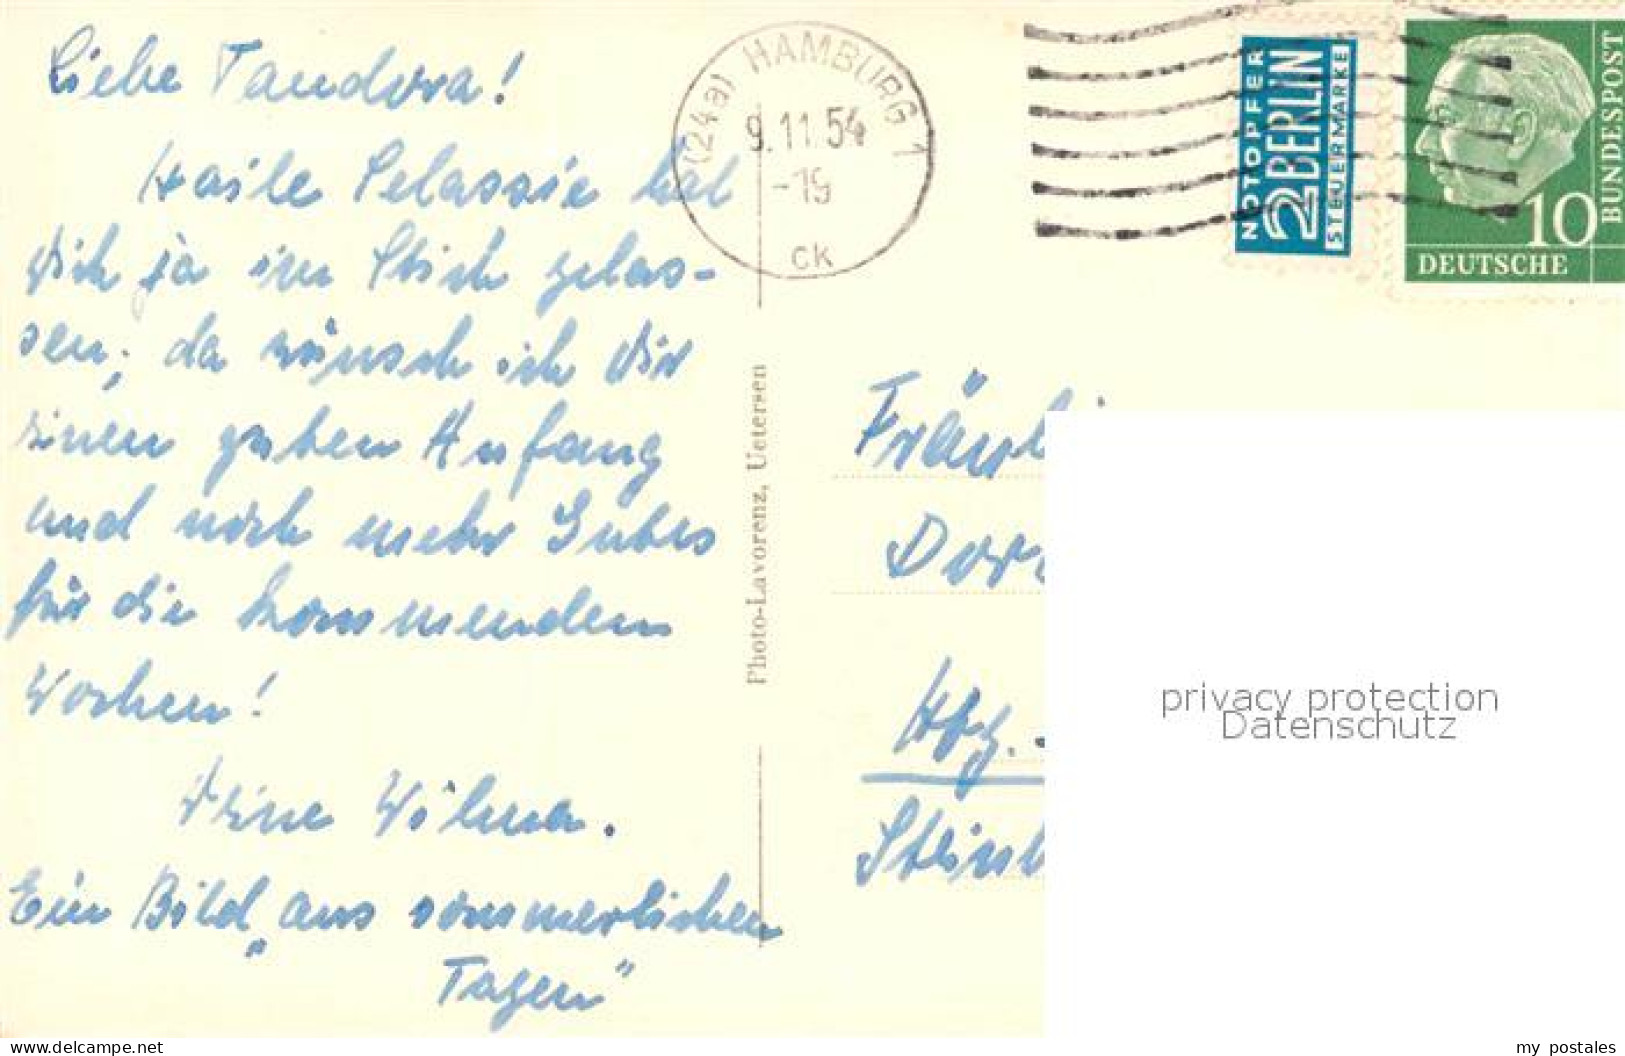 Liebe Tandora!
Haile Selassie hat
Dich ja im Stich gelas-
sen; da wünsch ich Dir
einen guten Anfang
und noch mehr Gutes
für die kommenden
Wochen!
Deine Wilma.
Ein Bild „aus sommerlichen
Tagen"
(24a) HAMBURG 1
9.11.54
-19
ck
NOTOPFER
2 BERLIN
STEUERMARKE
10
DEUTSCHE
BUNDESPOST
Photo-Lavorenz, Uetersen
Hbg.
privacy protection
Datenschutz
www.delcampe.net
my postales